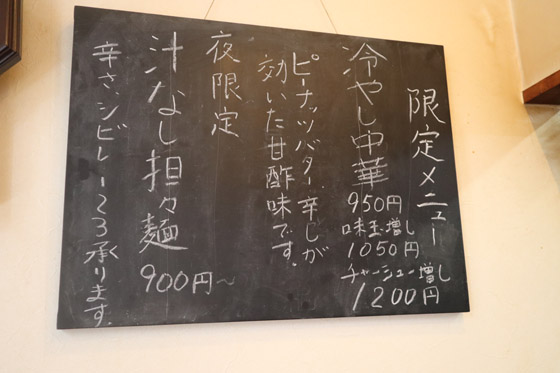 限定メニュー
冷やし中華
950円
味玉増し
1050円
チャーシュー増し
1200円
ピーナッツバター、辛しが
効いた甘酢味です。
夜限定
汁なし担々麺
900円～
辛さ、シビレ 1２３承ります。